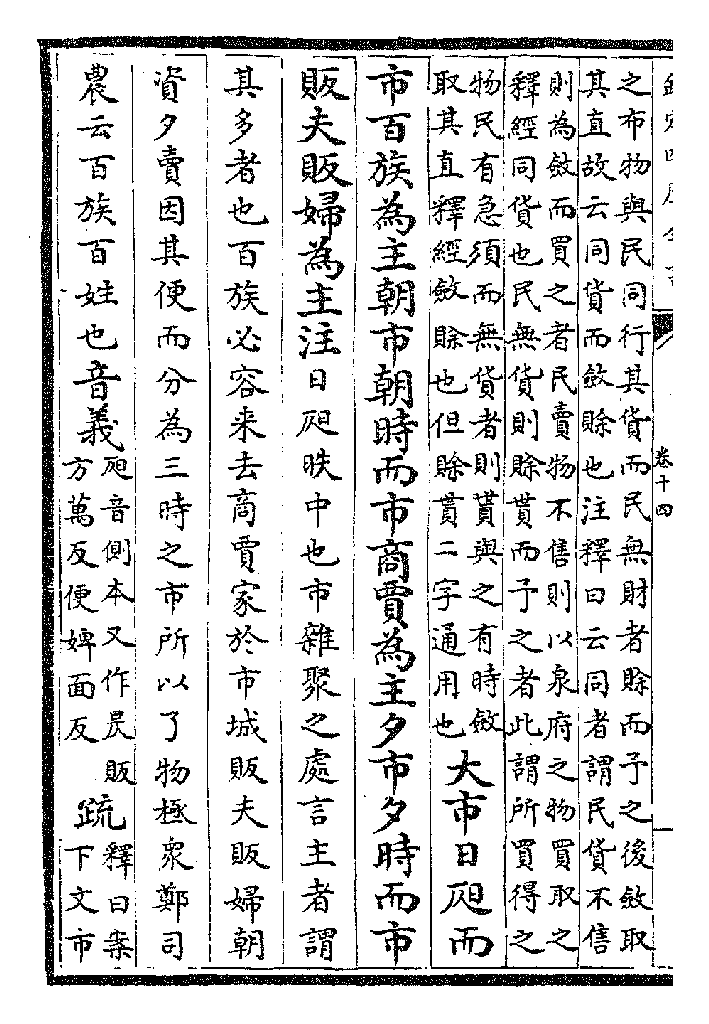 欽定四庫全書 卷十四
之布物與民同行其貨而民無財者賒而予之後斂取
其直故云同貨而斂賒也注釋曰云同者謂民貨不售
則為斂而買之者民賣物不售則以泉府之物買取之
釋經同貨也民無貨則賒貰而予之者此謂所買得之
物民有急須而無貨者則貰與之有時斂
取其直釋經斂賒也但賒貰二字通用也
大市日昃而
市百族為主朝市朝時而市商賈為主夕市夕時而市
販夫販婦為主注日昃昳中也市雜聚之處言主者謂
其多者也百族必容来去商賈家於市城販夫販婦朝
資夕賣因其便而分為三時之市所以了物極衆鄭司
農云百族百姓也音義
昃音側本又作昃販
方萬反便婢面反
疏
釋曰案
下文市